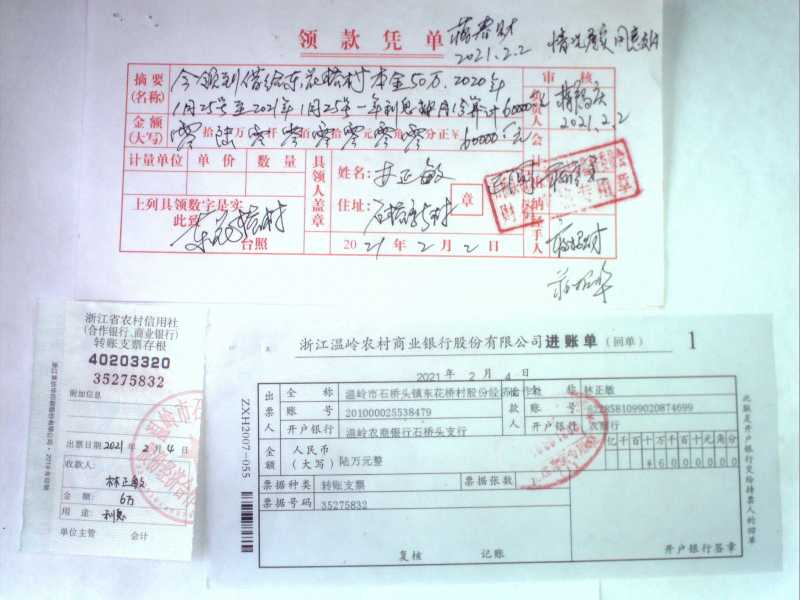 领款凭单
2021.2.2
情况属实 同意支付
摘要
(名称)
今领到借给东花桥村本金50万.2020年
1月25号至2021年1月25号一年利息
计60000元
审核
负责人
2021.2.2
金额
(大写)
零拾陆万零仟零佰零拾零元零角零分正¥ 60000元
计量单位 单价 数量
具领人盖章
姓名: 林正敏
住址:
章
会计
出纳
经手人
上列具领数字是实
此致
东花桥村
台照
2021年2月2日
浙江省农村信用社
(合作银行、商业银行)
转账支票存根
40203320
35275832
附加信息
出票日期2021年2月4日
收款人:
林正敏
金额: 6万
用途: 利息
单位主管 会计
浙江温岭农村商业银行股份有限公司进账单(回单) 1
2021年2月4日
ZXH2007-055
出票人
全称 温岭市石桥头镇东花桥村股份经济合作社
账号 201000025538479
开户银行 温岭农商银行石桥头支行
收款人
全称 林正敏
账号 6228581099020874699
开户银行 农商行
金额
人民币
(大写) 陆万元整
亿千百十万千百十元角分
¥6000000
票据种类 转账支票 票据张数
票据号码 35275832
复核 记账
开户银行签章
此联是开户银行交给持票人的回单